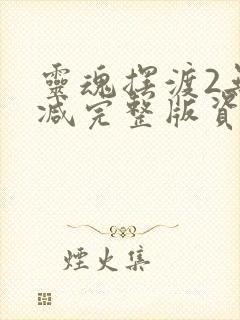 靈魂擺渡2無
減完整版資
煙火集